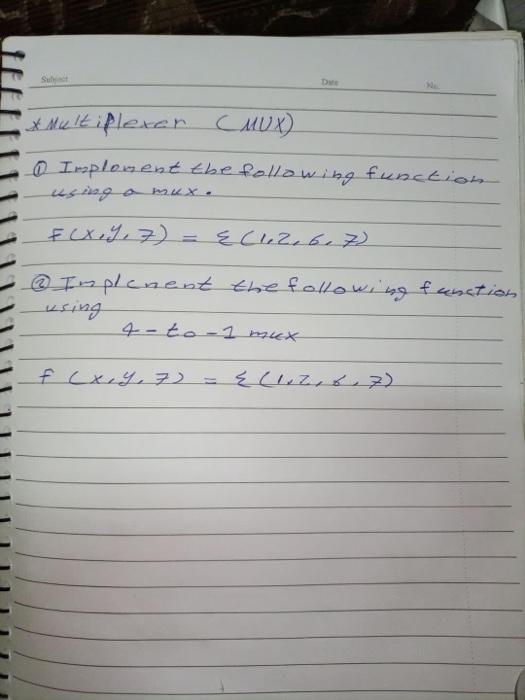 Subject
Date
No.
* Multiplexer (MUX)
① Implement the following function
using a mux.
F(x,y,z) = Σ(1,2,6,7)
② Implement the following function
using
4-to-1 mux
f (x,y,z) = Σ(1,2,6,7)